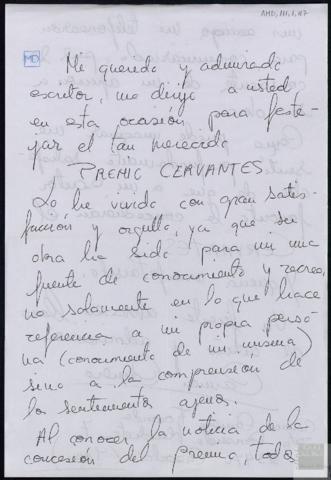 AMD, III, 1, 47
MD
Mi querido y admirado
escritor, me dirijo a usted
en esta ocasión para feste-
jar el tan merecido
PREMIO CERVANTES.
Lo he vivido con gran satis-
facción y orgullo, ya que su
obra ha sido para mi una
fuente de conocimiento y recreo,
no solamente en lo que hace
referencia a mi propia perso-
na (conocimiento de mi misma)
sino a la comprensión de
los sentimientos ajenos.
Al conocer la noticia de la
concesión del premio, todos